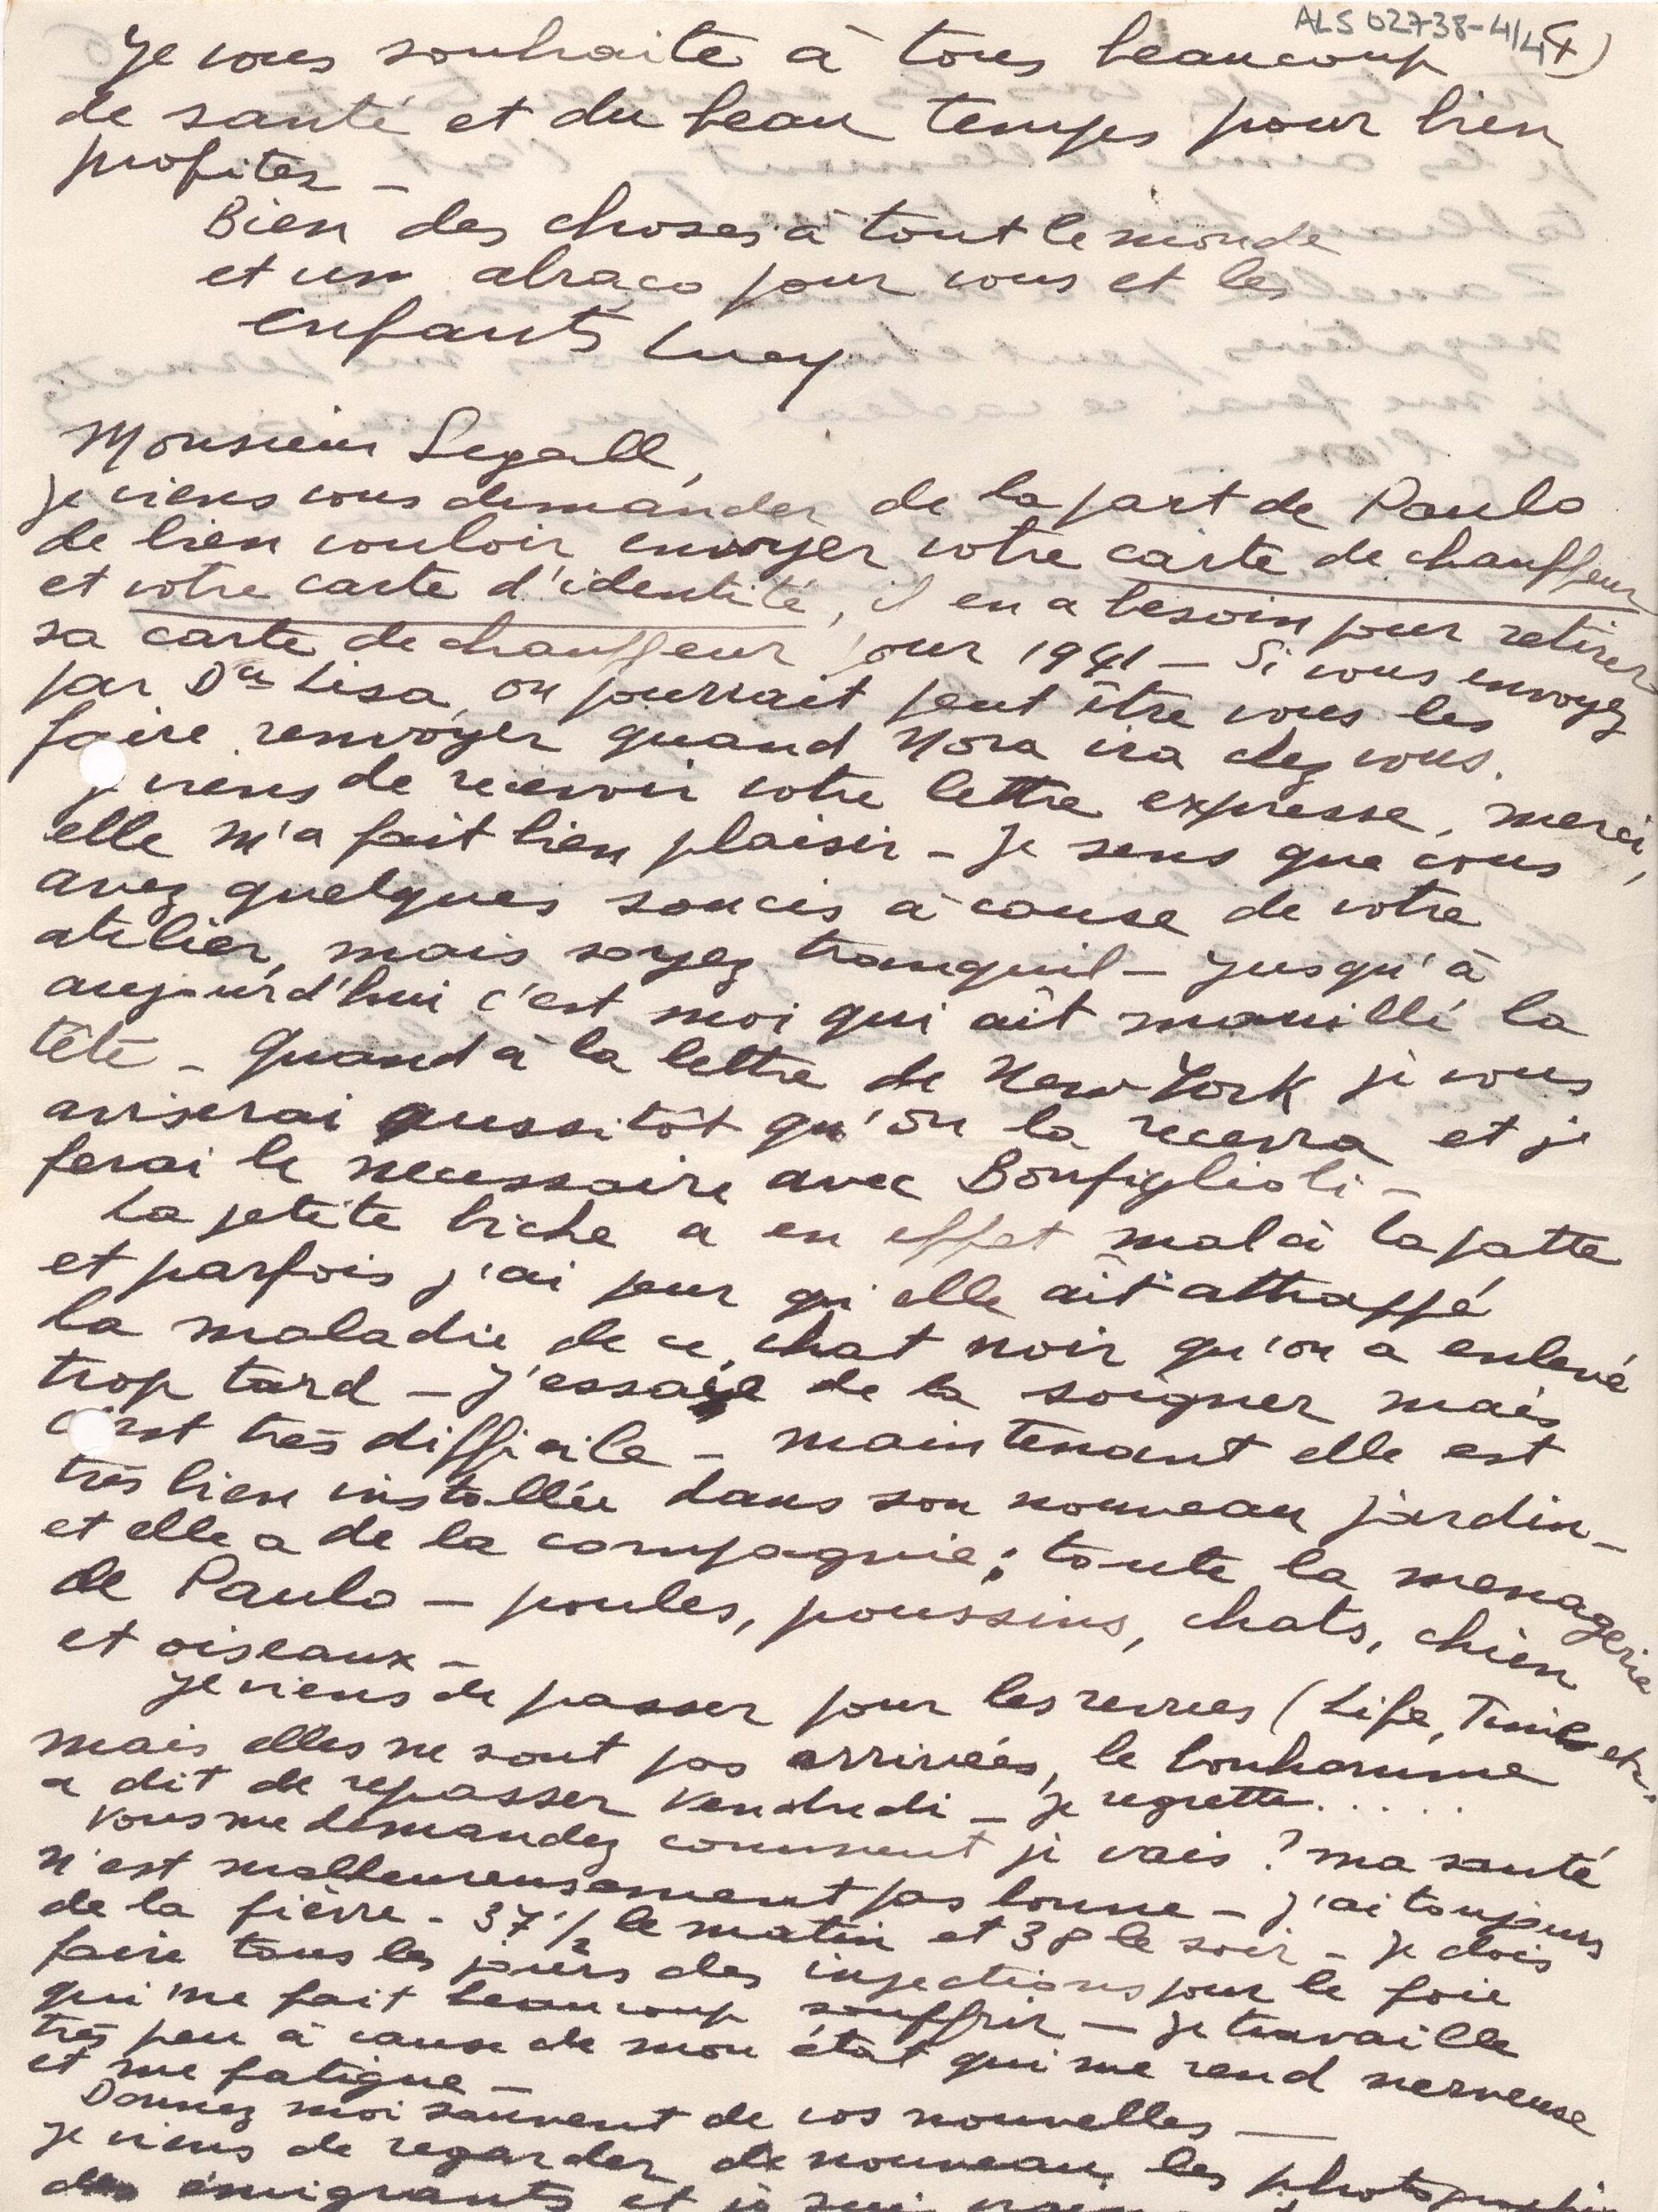 ALS 02738-4/4
4)
Je vous souhaite à tous beaucoup
de santé et du beau temps pour bien
profiter –
Bien des choses à tout le monde
et un abraço pour vous et les
enfants Lucy
Monsieur Segall,
je viens vous demander de la part de Paulo
de bien vouloir envoyer votre carte de chauffeur
et votre carte d'identité, il en a besoin pour retirer
sa carte de chauffeur pour 1941 – Si vous envoyez
par Da Lisa, on pourrait peut être vous les
faire renvoyer quand Nora ira chez vous.
je viens de recevoir votre lettre expresse, merci,
elle m'a fait bien plaisir – Je sens que vous
avez quelques soucis à cause de votre
atelier, mais soyez tranquil – jusqu'à
aujourd'hui c'est moi qui ait mouillé la
tête – Quand à la lettre de New York je vous
aviserai aussitôt qu'on la recevra et je
ferai le necessaire avec Bonfiglioli –
La petite biche a en effet mal à la patte
et parfois j'ai peur qu'elle ait attrappé
la maladie de ce chat noir qu'on a enlevé
trop tard – J'essaye de la soigner mais
c'est très difficile – maintenant elle est
très bien installée dans son nouveau jardin –
et elle a de la compagnie; toute la menagerie
de Paulo – poules, poussins, chats, chien
et oiseaux –
Je viens de passer pour les revues (Life, Time etc.
mais elles ne sont pas arrivées, le bonhomme
a dit de repasser Vendredi – je regrette.....
Vous me demandez comment je vais? ma santé
n'est malheureusement pas bonne – j'ai toujours
de la fièvre – 37 1/2 le matin et 38 le soir – Je dois
faire tous les jours des injections pour le foie
qui me fait beaucoup souffrir – je travaille
très peu à cause de mon état qui me rend nerveuse
et me fatigue –
Donnez moi souvent de vos nouvelles –
je viens de regarder de nouveau les
des émigrants et je